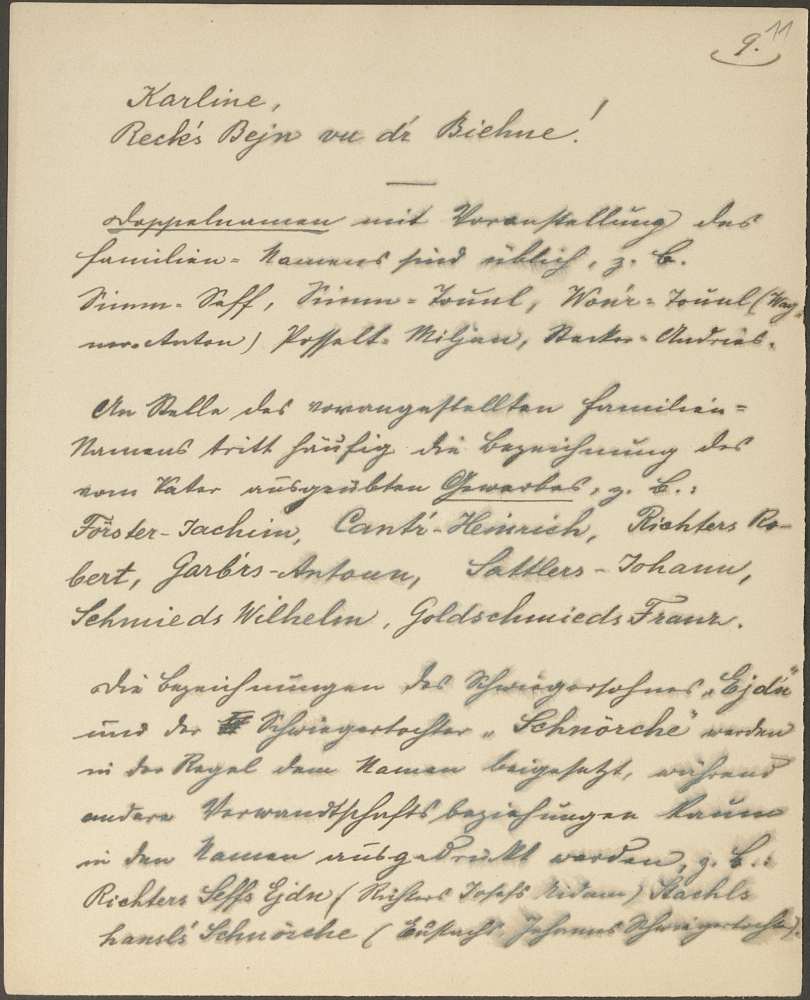 9. 11
Karline,
Reck's Bejn vu dr Biehne!
Doppelnamen mit Voranstellung des
Familien-Namens sind üblich, z. B.
Simm-Seff, Simm-Tounl, Won'r-Tounl (Wag-
ner-Anton) Posselt-Miljan, Stecker-Andreas.
An Stelle des vorangestellten Familien-
Namens tritt häufig die Bezeichnung des
vom Vater ausgeübten Gewerbes, z. B.:
Förster-Jachim, Cant'r-Heinrich, Richters Ro-
bert, Garb'rs-Antoun, Sattlers-Johann,
Schmieds Wilhelm, Goldschmieds Franz.
Die Bezeichnungen des Schwiegersohnes „Ejdn"
und der Schwiegertochter „Schnörche" werden
in der Regel dem Namen beigesetzt, während
andere Verwandtschaftsbeziehungen kaum
in den Namen ausgedrückt werden, z. B.:
Richters Seffs Ejdn (Richters Josefs Eidam) Stachls
hansls Schnörche (Eustachs Johannes Schwiegertochter).